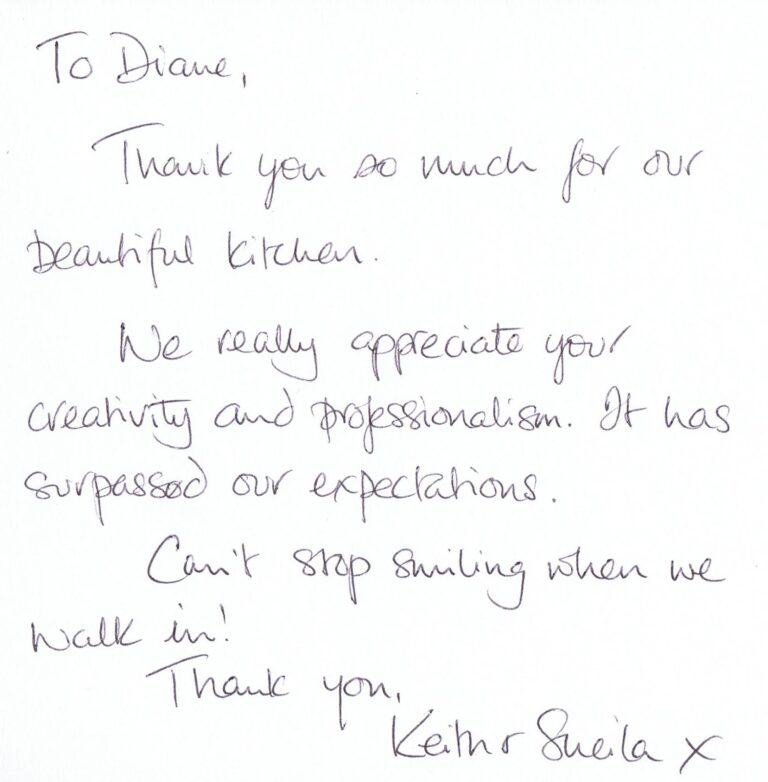 To Diane,
Thank you so much for our
beautiful kitchen.
We really appreciate your
creativity and professionalism. It has
surpassed our expectations.
Can't stop smiling when we
walk in!
Thank you,
Keith & Sheila x